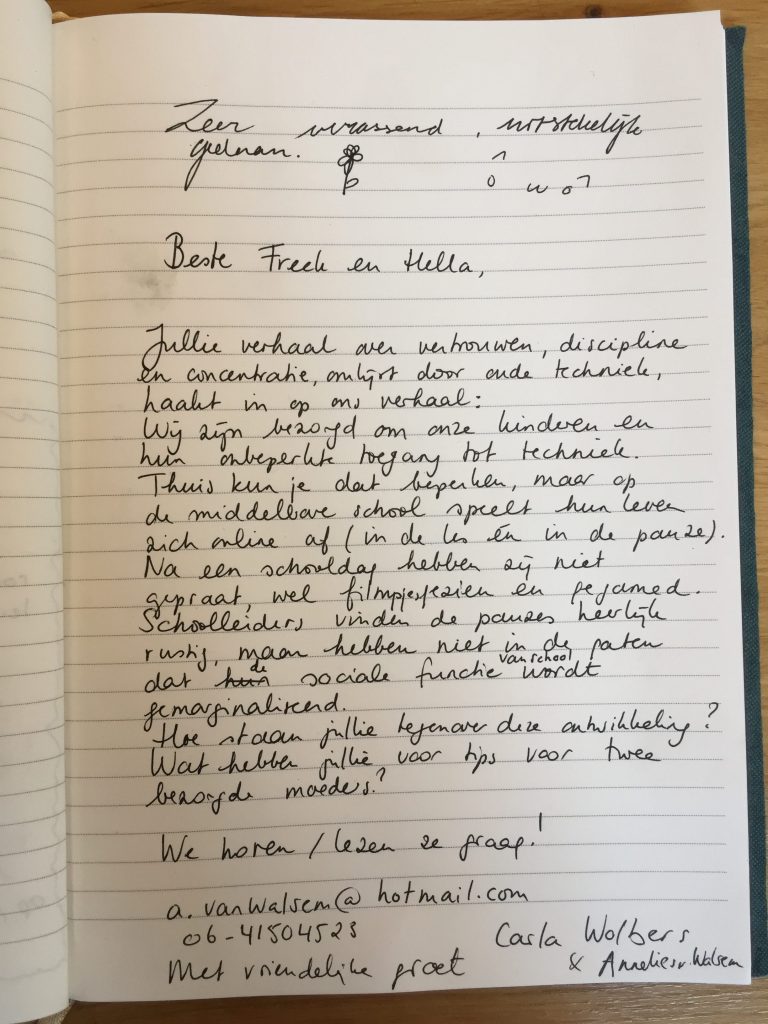 Zeer verassend, uitstekelijk
gedaan.
Beste Freek en Hella,
Jullie verhaal over vertrouwen, discipline
en concentratie, omlijst door oude techniek,
haakt in op ons verhaal:
Wij zijn bezorgd om onze kinderen en
hun onbeperkte toegang tot techniek.
Thuis kun je dat beperken, maar op
de middelbare school speelt hun leven
zich online af (in de les én in de pauze).
Na een schooldag hebben zij niet
gepraat, wel filmpjes gezien en gegamed.
Schoolleiders vinden de pauzes heerlijk
rustig, maar hebben niet in de gaten
dat de sociale functie van school wordt
gemarginaliseerd.
Hoe staan jullie tegenover deze ontwikkeling?
Wat hebben jullie voor tips voor twee
bezorgde moeders?
We horen / lezen ze graag!
a.vanWalsem@hotmail.com
06-41504523
Carla Wolbers
Met vriendelijke groet
& Annelies v. Walsem